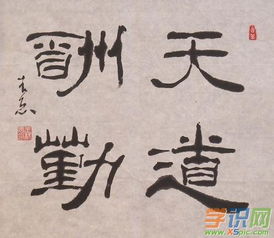 天道
酬勤
学识网
www.xspic.com